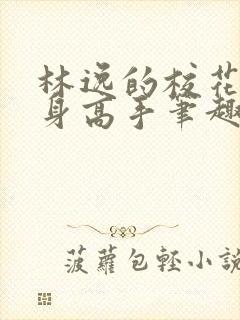 林逸的校花
身高手筆趣
菠蘿包輕小說